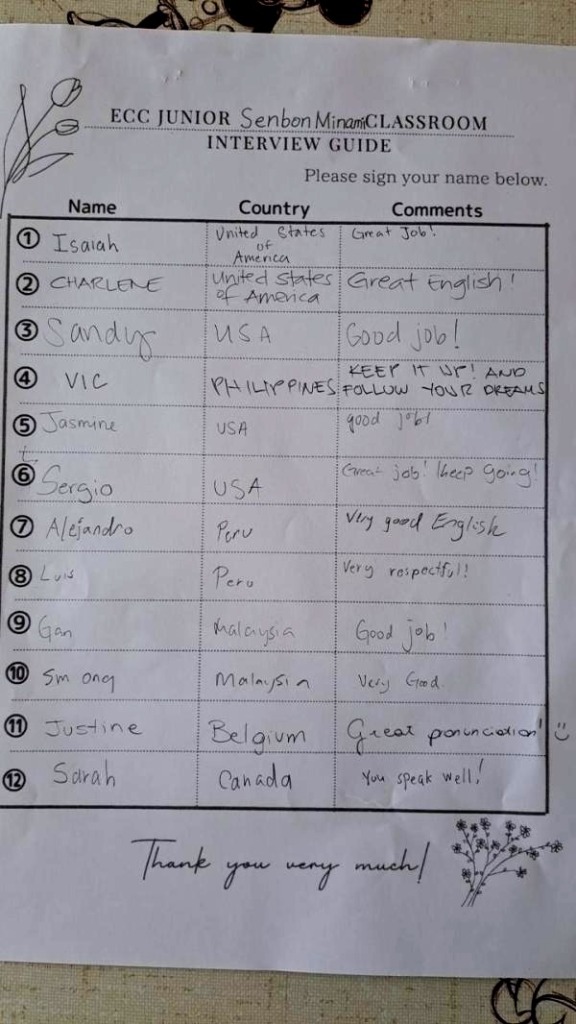 ECC JUNIOR Senbon Minami CLASSROOM
INTERVIEW GUIDE
Please sign your name below.
Name Country Comments
① Isaiah United States of America Great Job!
② CHARLENE United States of America Great English!
③ Sandy USA Good job!
④ VIC PHILIPPINES KEEP IT UP! AND FOLLOW YOUR DREAMS
⑤ Jasmine USA good job!
⑥ Sergio USA Great job! keep going!
⑦ Alejandro Peru Very good English
⑧ Luis Peru Very respectful!
⑨ Gan Malaysia Good job!
⑩ Sm ong Malaysia Very Good
⑪ Justine Belgium Great pronunciation! :)
⑫ Sarah Canada You speak well!
Thank you very much!